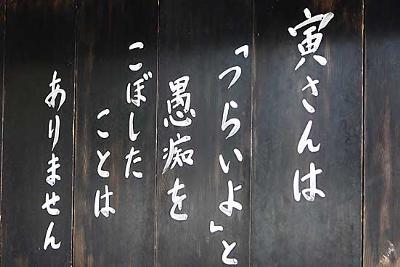 寅さんは
「つらいよ」と
愚痴を
こぼした
ことは
ありません